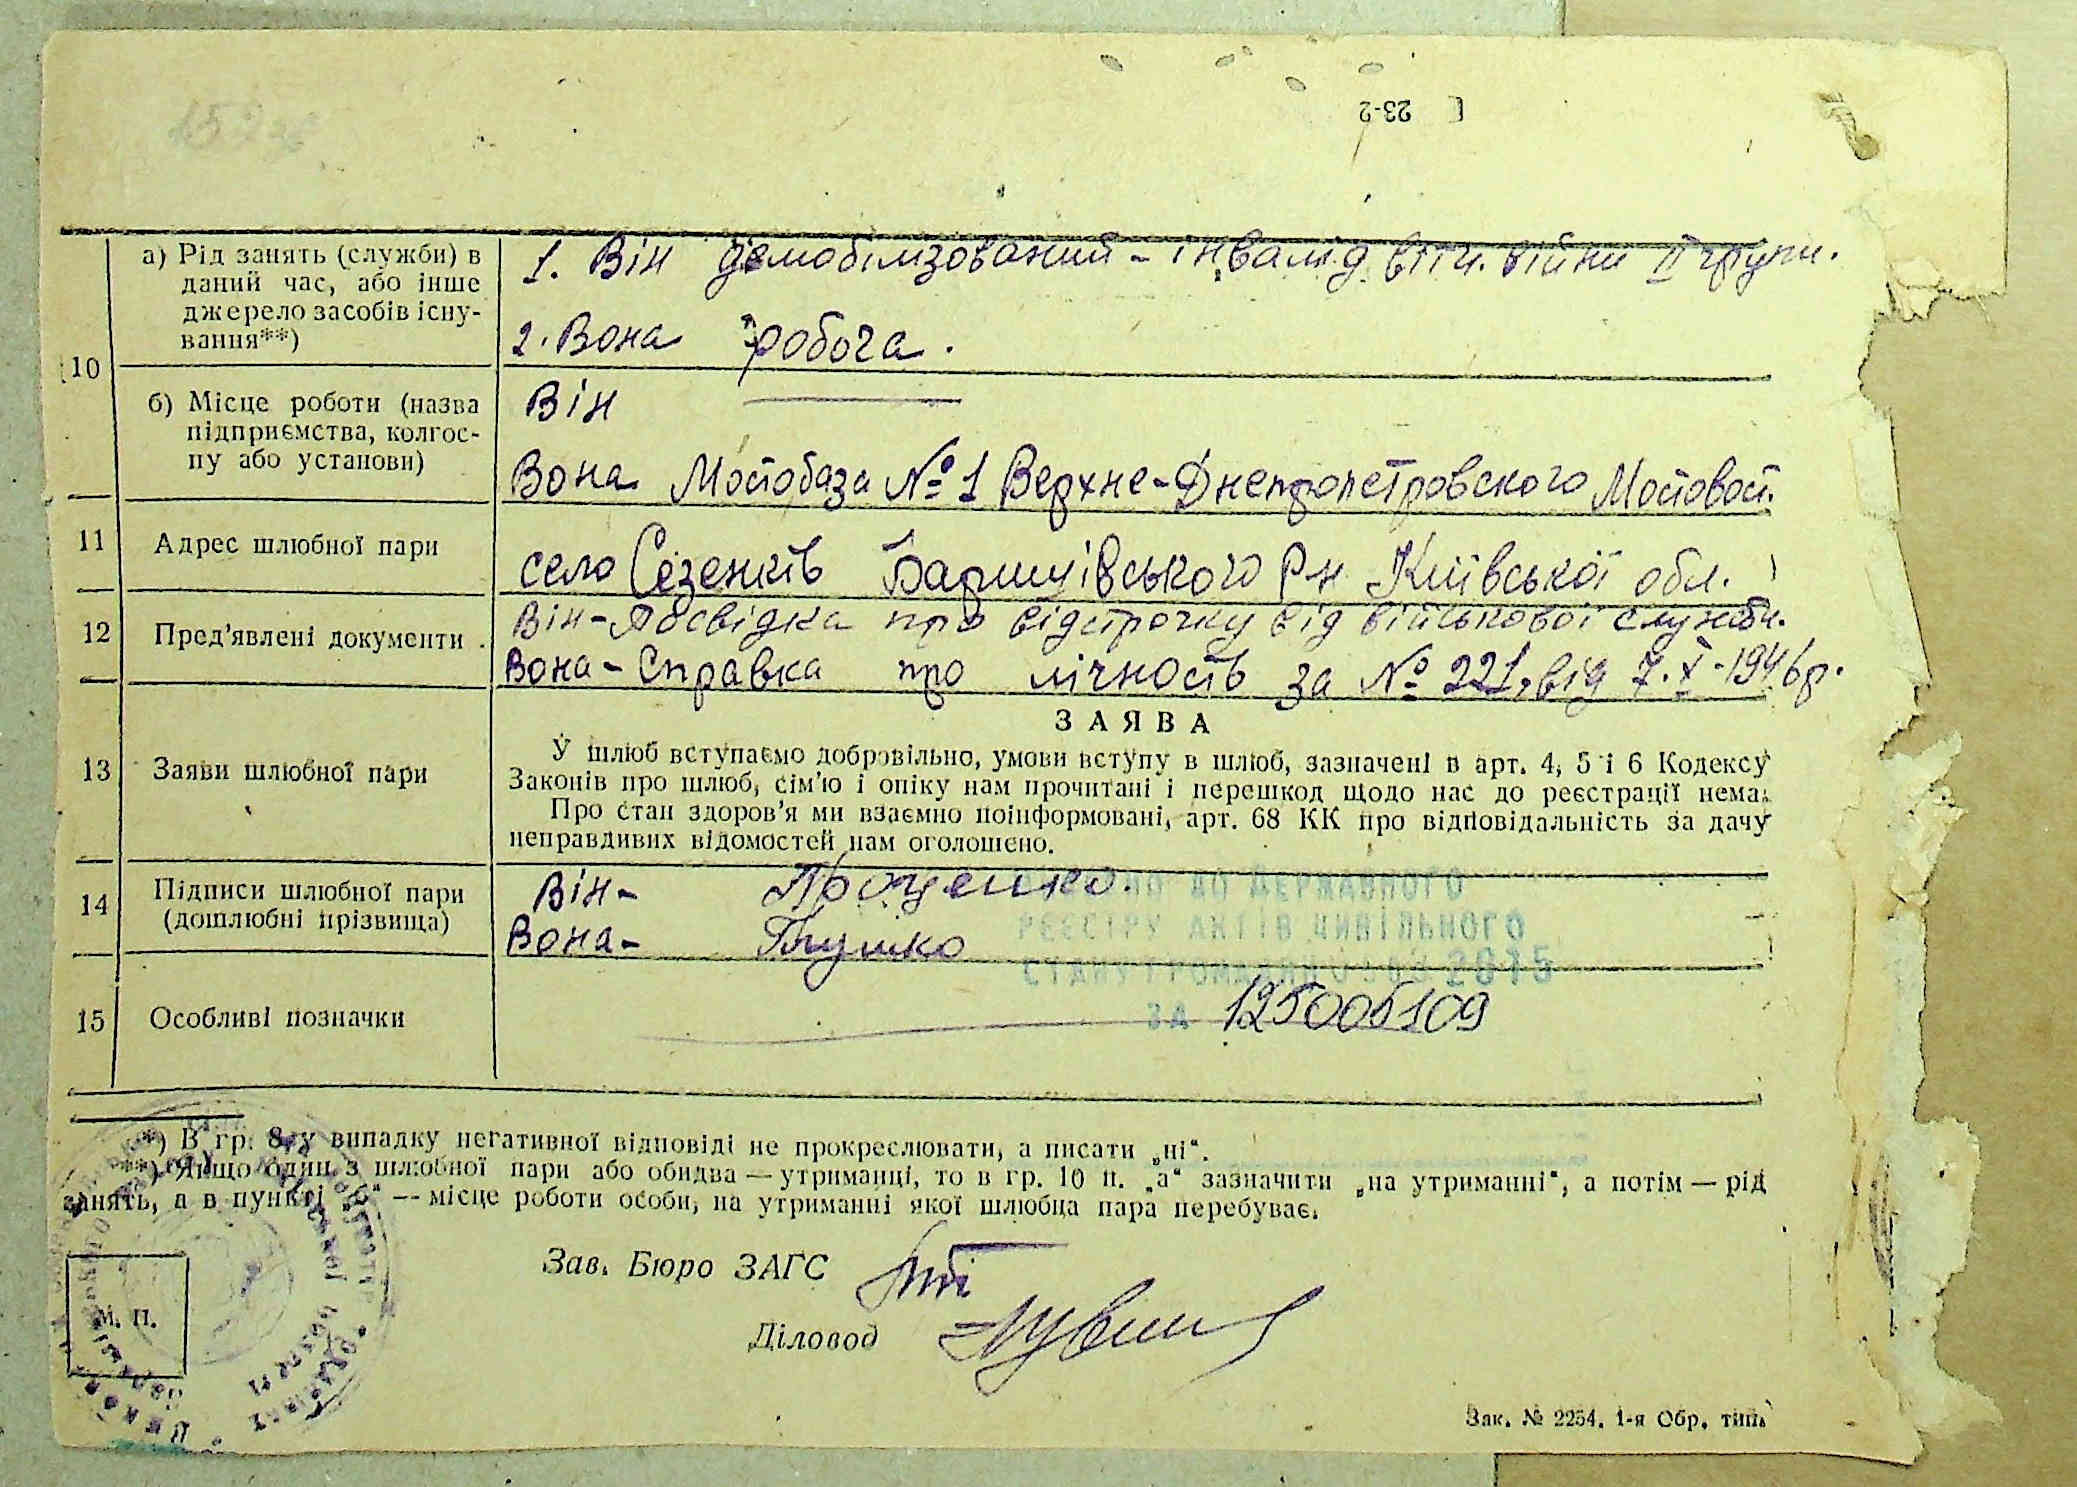 23-2
10
а) Рід занять (служби) в
даний час, або інше
джерело засобів існу-
вання**)
1. Він демобілізований - інвалід вітч. війни ІІ групи.
2. Вона робоча.
б) Місце роботи (назва
підприємства, колгос-
пу або установи)
Він
Вона Мостобаза № 1 Верхне-Днепропетровского Мостовост.
11 Адрес шлюбної пари
село Сезенків Баришівського Р-н Київської обл.
12 Пред'явлені документи.
Він - Посвідка про відстрочку від військової служби.
Вона - Справка про лічность за № 221, від 7.X-1946р.
13 Заяви шлюбної пари
ЗАЯВА
У шлюб вступаємо добровільно, умови вступу в шлюб, зазначені в арт. 4, 5 і 6 Кодексу
Законів про шлюб, сім'ю і опіку нам прочитані і перешкод щодо нас до реєстрації нема.
Про стан здоров'я ми взаємно поінформовані, арт. 68 КК про відповідальність за дачу
неправдивих відомостей нам оголошено.
14 Підписи шлюбної пари
(дошлюбні прізвища)
Він - Проценко.
Вона - Глушко
ДО ДЕРЖАВНОГО
РЕЄСТРУ АКТІВ ЦИВІЛЬНОГО
СТАНУ ГРОМАДЯН 2015
ЗА 125006109
15 Особливі позначки
*) В гр. 8 у випадку негативної відповіді не прокреслювати, а писати „ні“.
**) Якщо один з шлюбної пари або обидва — утриманці, то в гр. 10 п. „а“ зазначити „на утриманні“, а потім — рід
занять, а в пункті „б“ — місце роботи особи, на утриманні якої шлюбна пара перебуває.
Зав. Бюро ЗАГС
Діловод
М. П.
Зак. № 2254. 1-я Обр. тип.